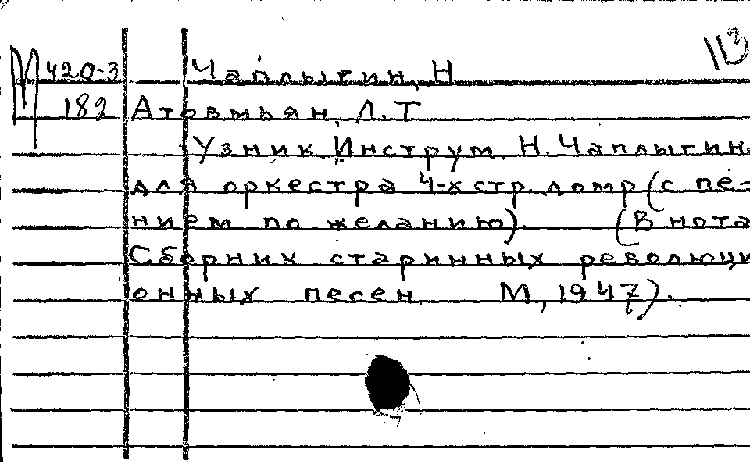 М420-3 Чаплыгин, Н
182 Атовмьян, Л.Т
Узник. Инструм. Н. Чаплыгин.
для оркестра 4-х стр. домр (с пе-
нием по желанию). (В нота
Сборник старинных революци
онных песен. М, 1947).